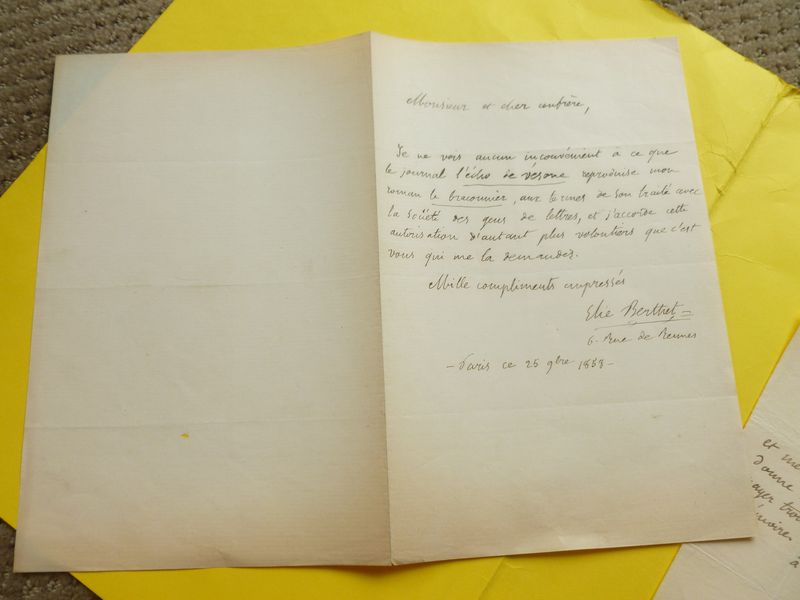 Monsieur et cher confrère,
Je ne vois aucun inconvénient à ce que
le journal l'écho de vésone reproduise mon
roman le braconnier, aux termes de son traité avec
la Société des gens de lettres, et j'accorde cette
autorisation d'autant plus volontiers que c'est
vous qui me la demandez.
Mille compliments empressés
Elie Berthet
6. Rue de Rennes
- Paris ce 25 9bre 1858 -
et me
donne
ayer
moire.
a